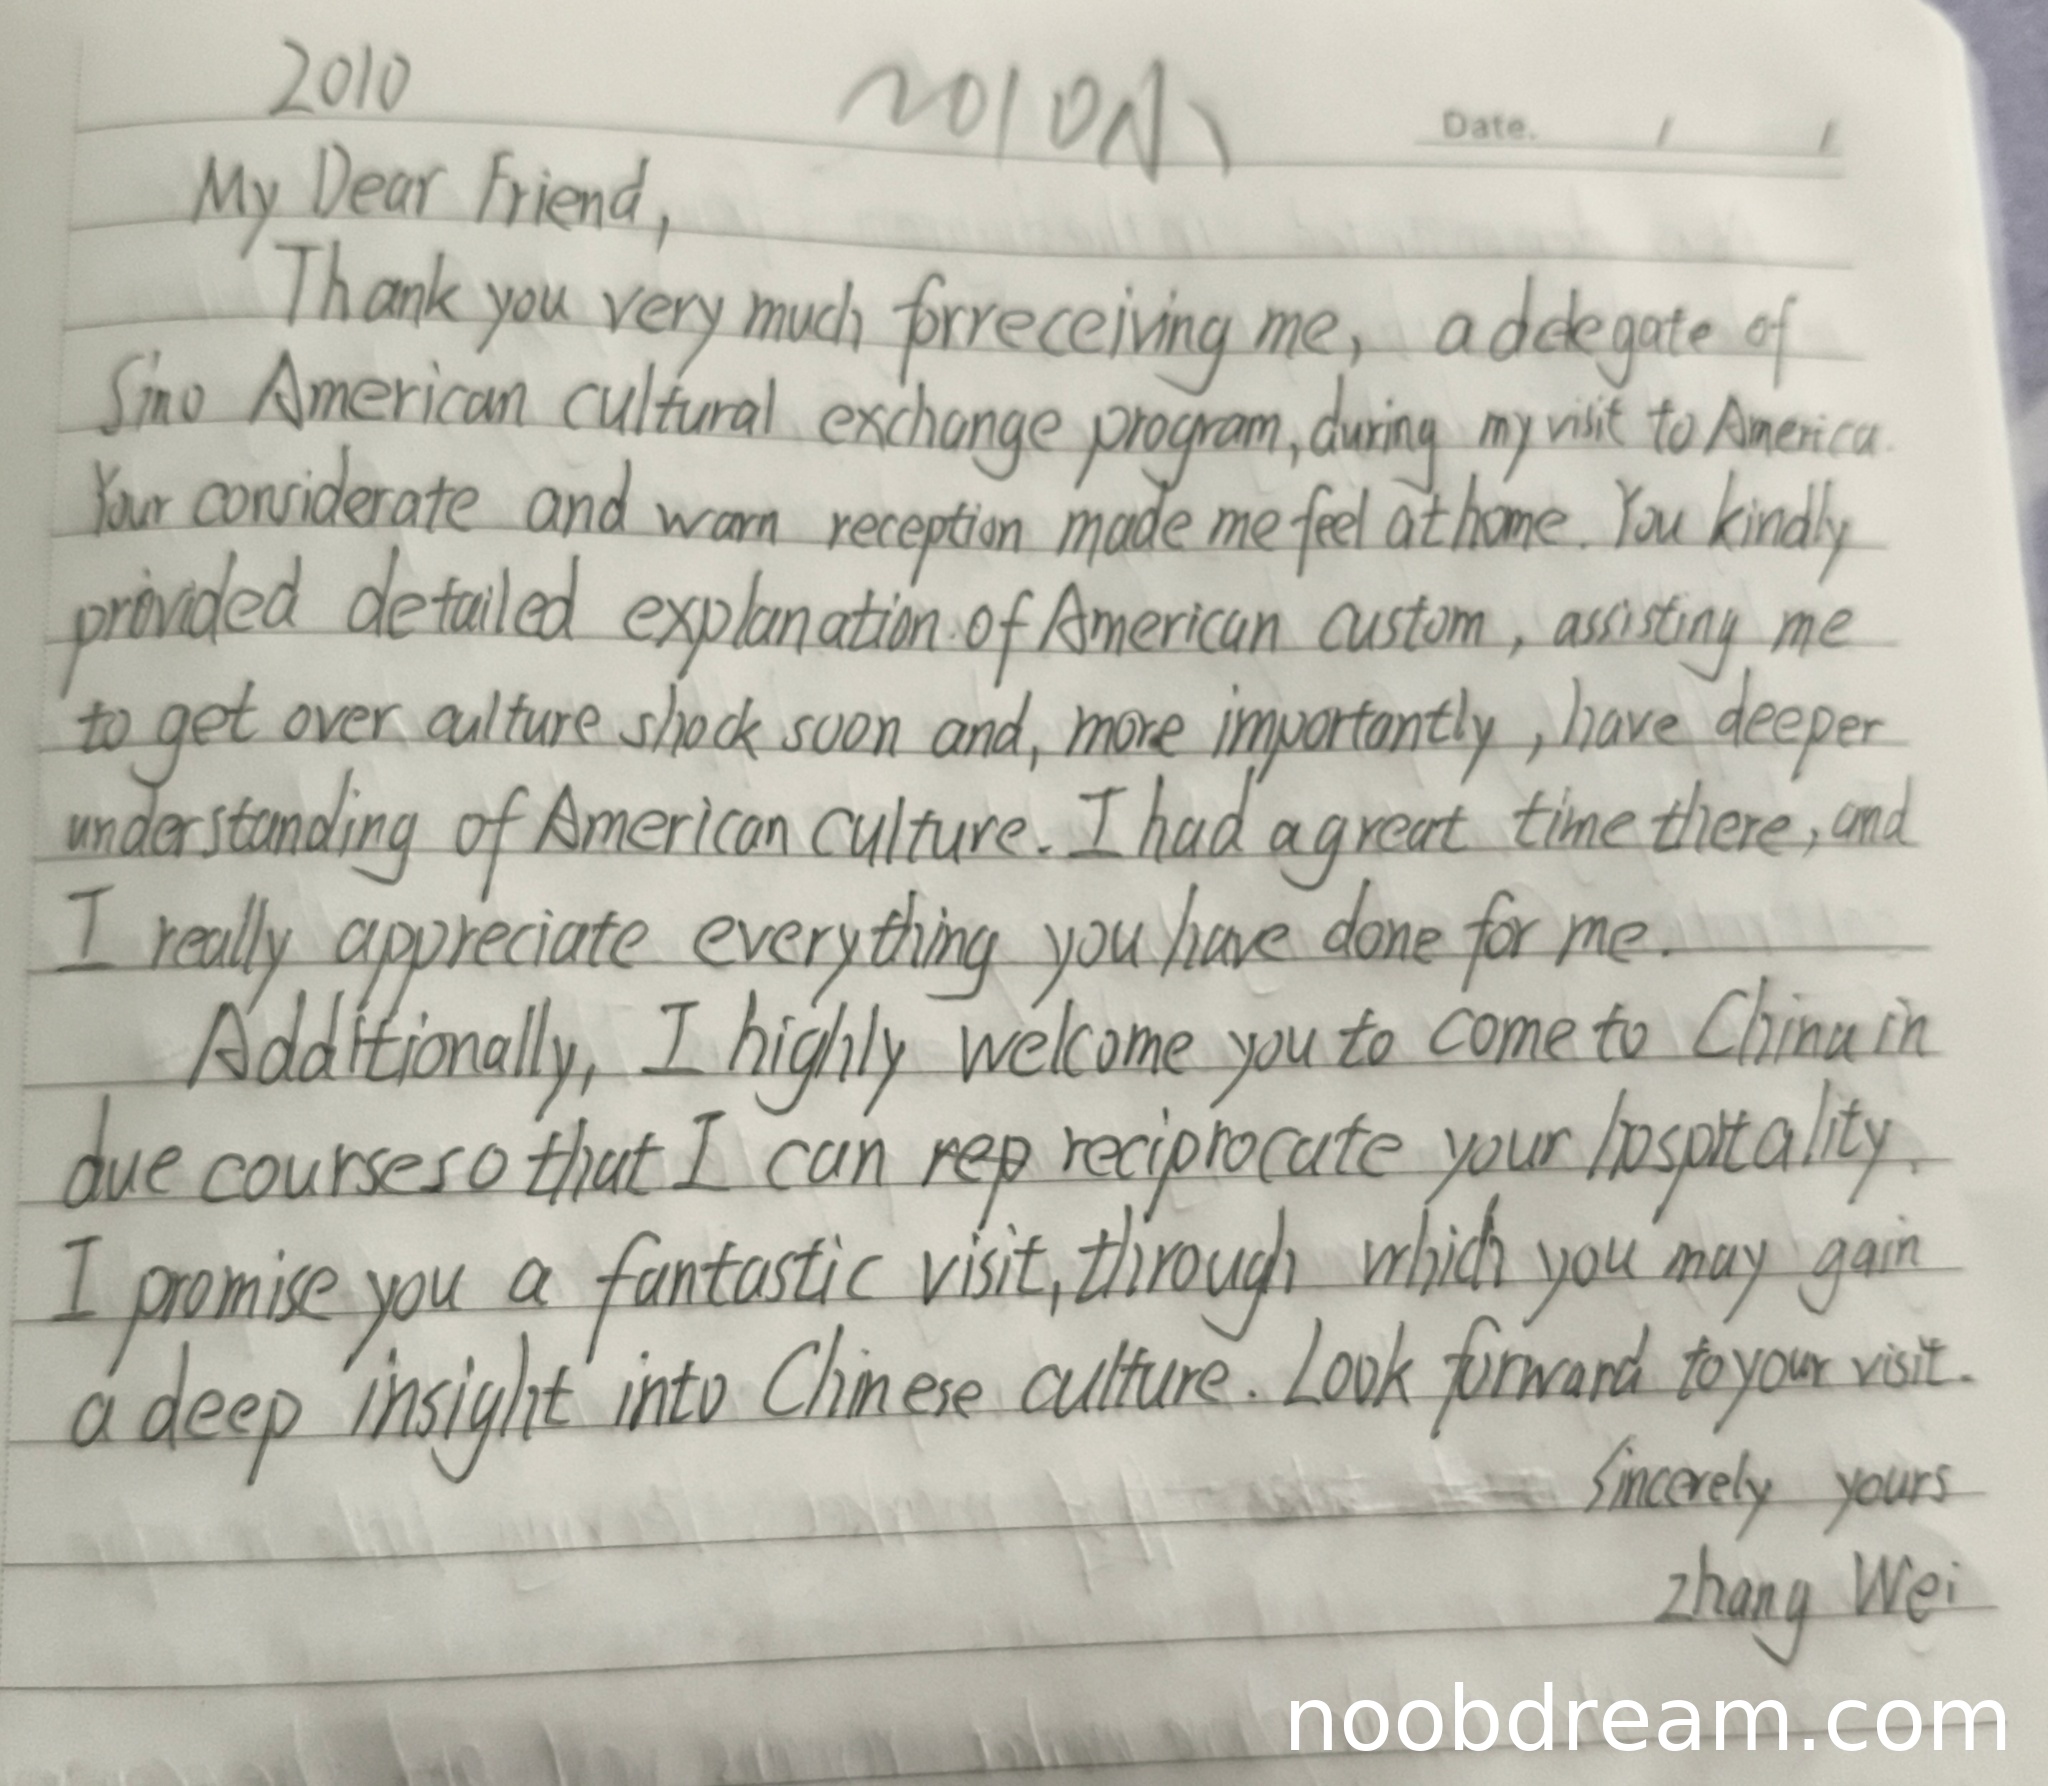 2010
2010
Date. / /
My Dear Friend,
Thank you very much for receiving me, a delegate of
Sino American cultural exchange program, during my visit to America.
Your considerate and warn reception made me feel at home. You kindly
provided detailed explanation of American custom, assisting me
to get over culture shock soon and, more importantly, have deeper
understanding of American culture. I had a great time there, and
I really appreciate everything you have done for me.
Additionally, I highly welcome you to come to China in
due course so that I can rep reciprocate your hospitality.
I promise you a fantastic visit, through which you may gain
a deep insight into Chinese culture. Look forward to your visit.
Sincerely yours
Zhang Wei
noobdream.com